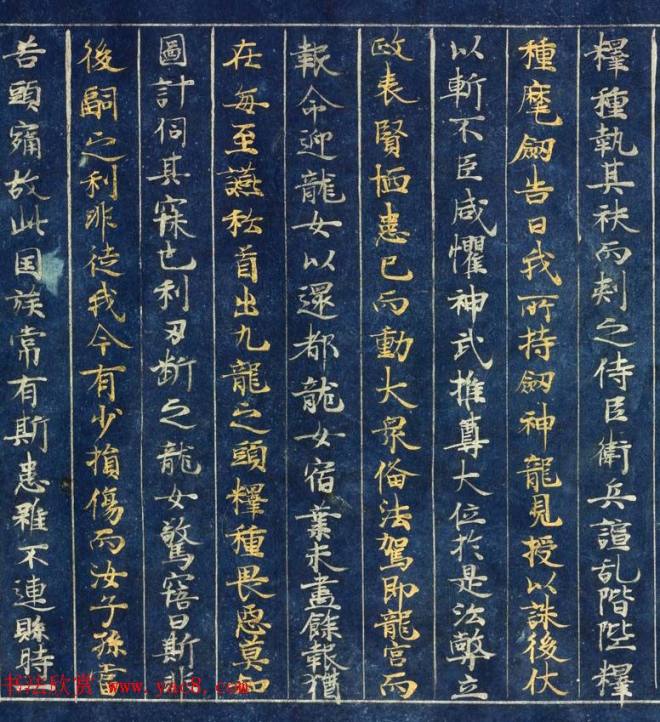 釋種執其袂而刾之侍臣衛兵諠乱階陛釋
種麾劒告曰我所持劒神龍見授以誅後伏
以斬不臣咸懼神武推尊大位於是法弊立
政表賢恤患已而動大衆俻法駕即龍宮而
報命迎龍女以還都龍女宿業未盡餘報猶
在每至讌私首出九龍之頭釋種畏惡莫知
圖計伺其寐也利刃断之龍女驚寤曰斯非
後嗣之利非徒我今有少損傷而汝子孫當
苦頭痛故此国族常有斯患雖不連緜時
书法欣赏 www.yac8.com